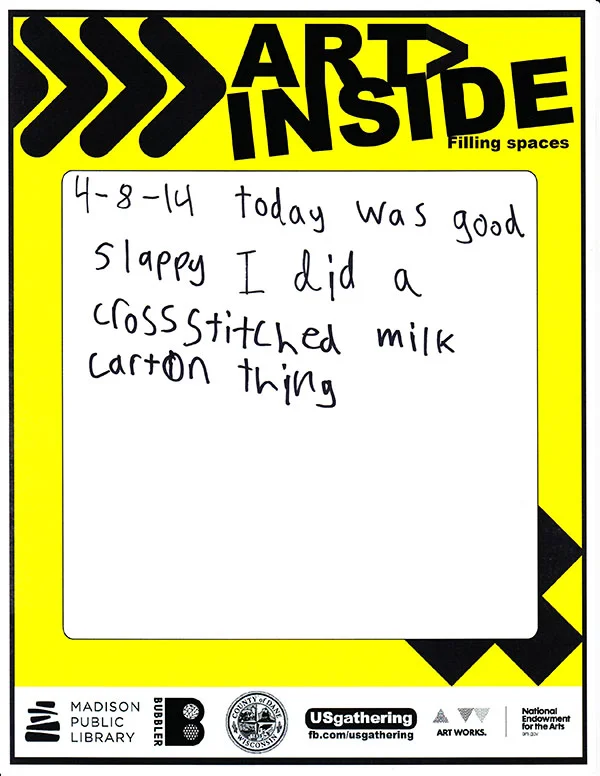 ART>
INSIDE
Filling spaces
4-8-14 today was good
slappy I did a
crossstitched milk
carton thing
MADISON
PUBLIC
LIBRARY
BUBBLER
B
COUNTY of DANE
WISCONSIN
USgathering
fb.com/usgathering
ART WORKS.
National
Endowment
for the Arts
arts.gov